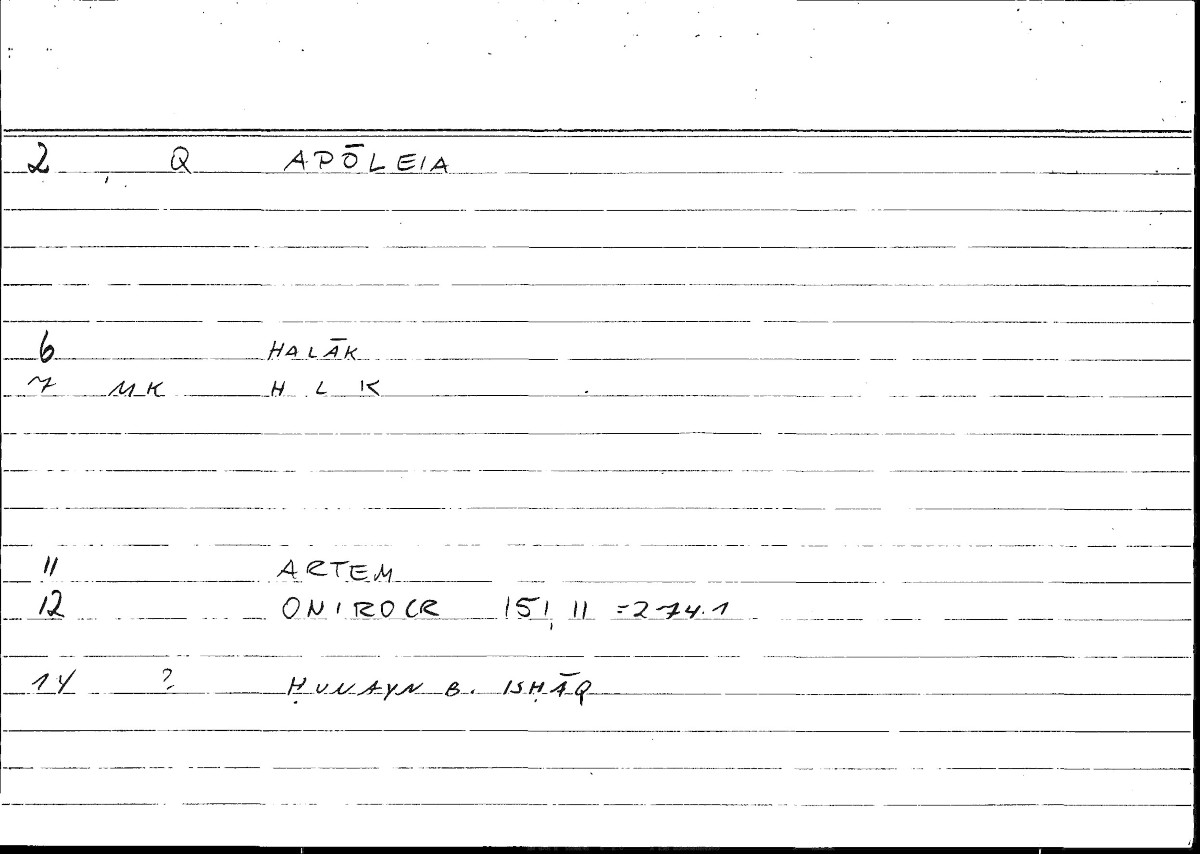 2 Q APŌLEIA
6 HALĀK
7 MK H L K
11 ARTEM
12 ONIROCR 151,11 =274.1
14 ? ḤUNAYN B. ISḤĀQ